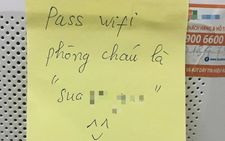 Pass wifi
phòng cháu là
"sua "
^^
900 6600